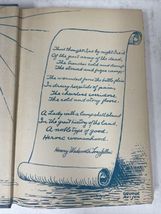 Thus thought I, as by night I read
Of the great army of the dead,
The trenches cold and damp,
The starved and frozen camp,
The wounded from the battle-plain,
In dreary hospitals of pain,
The cheerless corridors,
The cold and stony floors.
A Lady with a Lamp shall stand
In the great history of the land,
A noble type of good,
Heroic womanhood.
Henry Wadsworth Longfellow